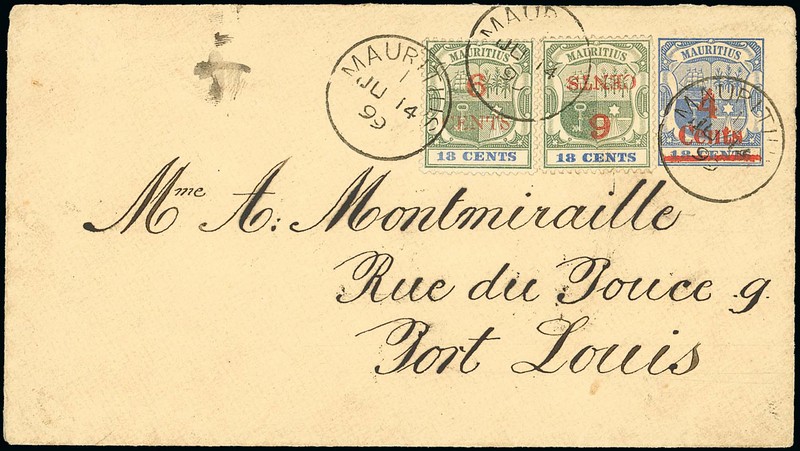 MAURITIUS
1
JU 14
99
MAURITIUS
6
CENTS
18 CENTS
MAUR
JU 14
9
MAURITIUS
6
CENTS
18 CENTS
MAURITIUS
4
Cents
18 CENTS
MAURITIU
Mme A: Montmiraille
Rue du Pouce 9.
Port Louis